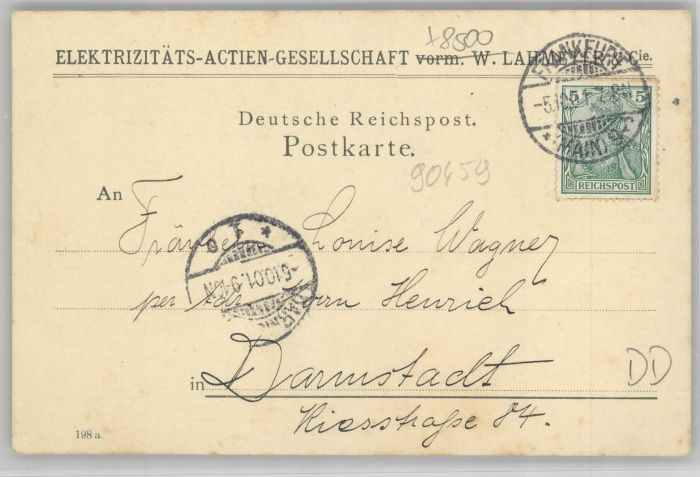 +8500
ELEKTRIZITÄTS-ACTIEN-GESELLSCHAFT vorm. W. LAHMEYER & Cie.
FRANKFURT
-5.10.
(MAIN)
5
REICHSPOST
Deutsche Reichspost.
Postkarte.
90459
An
Fräulein Louise Wagner
per Herrn Heinrich
in Darmstadt
DD
Riesstraße 84.
-5.10.01.9-10N
DARM
198 a